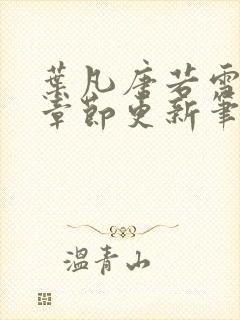 葉凡唐若雪
章節更新筆
溫青山